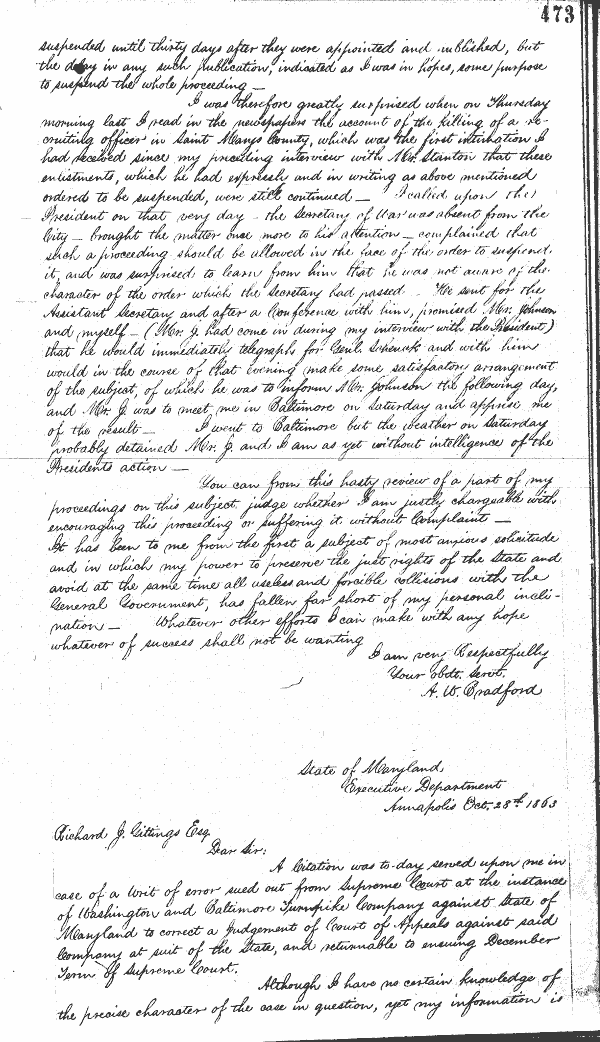 473
suspended until thirty days after they were appointed and published, but
the delay in any such publication, indicated as I was in hopes, some purpose
to suspend the whole proceeding —
I was therefore greatly surprised when on Thursday
morning last I read in the newspapers the account of the killing of a re-
cruiting officer in Saint Marys County, which was the first intimation I
had received since my preceding interview with Mr. Stanton that these
enlistments, which he had expressly and in writing as above mentioned
ordered to be suspended, were still continued — I called upon the
President on that very day – the Secretary of War was absent from the
City – brought the matter once more to his attention – complained that
such a proceeding should be allowed in the face of the order to suspend
it, and was surprised to learn from him that he was not aware of the
character of the order which the Secretary had passed – He sent for the
Assistant Secretary and after a Conference with him, promised Mr. Johnson
and myself – (Mr. J. had come in during my interview with the President)
that he would immediately telegraph for Genl. Schenck and with him
would in the course of that Evening make some satisfactory arrangement
of the subject, of which he was to inform Mr. Johnson the following day,
and Mr. J. was to meet me in Baltimore on Saturday and apprise me
of the result — I went to Baltimore but the weather on Saturday
probably detained Mr. J. and I am as yet without intelligence of the
Presidents action —
You can from this hasty review of a part of my
proceedings on this subject, judge whether I am justly chargeable with
encouraging this proceeding or suffering it without Complaint —
It has been to me from the first a subject of most anxious solicitude
and in which my power to preserve the just rights of the State and
avoid at the same time all useless and forcible collisions with the
General Government, has fallen far short of my personal incli-
nation — Whatever other efforts I can make with any hope
whatever of success shall not be wanting
I am very Respectfully
Your obdt. Servt.
A. W. Bradford
State of Maryland
Executive Department
Annapolis Oct. 28th 1863
Richard J. Gittings Esq
Dear Sir:
A Citation was to-day served upon me in
case of a Writ of error sued out from Supreme Court at the instance
of Washington and Baltimore Turnpike Company against State of
Maryland to correct a Judgement of Court of Appeals against said
Company at suit of the State, and returnable to ensuing December
Term of Supreme Court.
Although I have no certain knowledge of
the precise character of the case in question, yet my information is